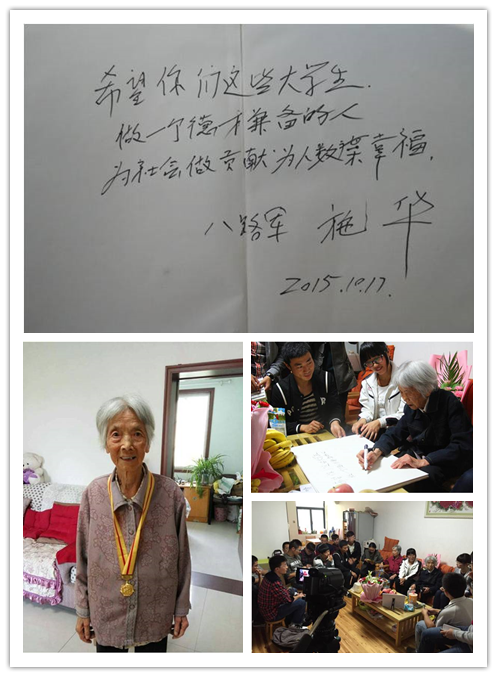 希望你们这些大学生.
做一个德才兼备的人
为社会做贡献为人幸福.
八路军 施华
2015.10.17.